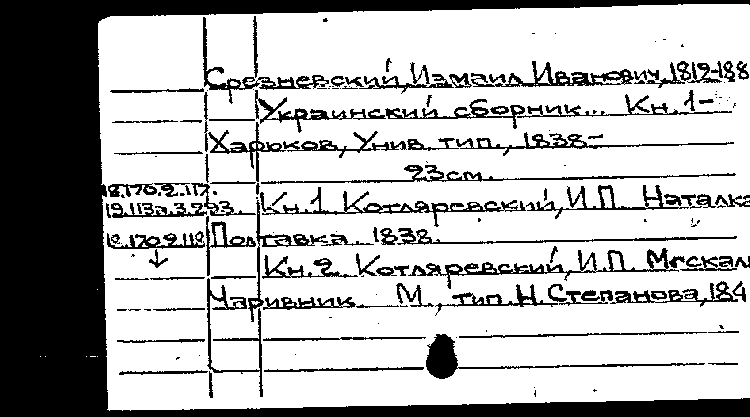 Срезневский, Измаил Иванович, 1812-188
Украинский сборник... Кн. 1-
Харьков, Унив. тип., 1838-
23см.
18.170.2.117.
19.113а.3.293. Кн.1 Котляревский, И.П. Наталка
18.170.2.118 Полтавка. 1838.
Кн.2. Котляревский, И.П. Москаль
Чаривник. М., тип. Н. Степанова, 184